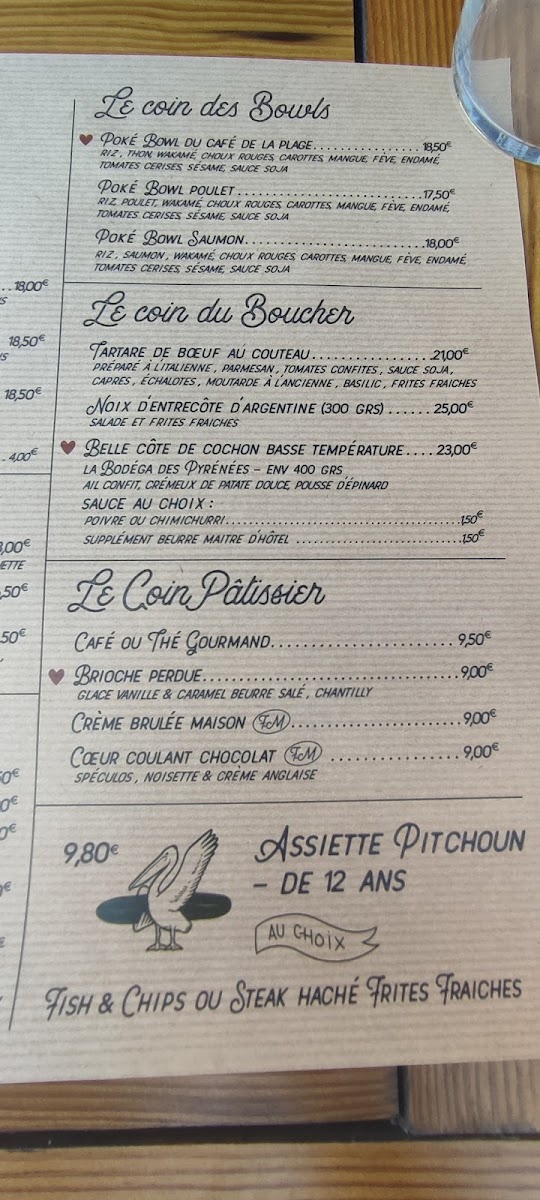 Le coin des Bowls
Poké Bowl du café de la plage................ 18,50€
riz, thon, wakamé, choux rouges, carottes, mangue, fève, endamé,
tomates cerises, sésame, sauce soja
Poké Bowl poulet............................17,50€
riz, poulet, wakamé, choux rouges, carottes, mangue, fève, endamé,
tomates cerises, sésame, sauce soja
Poké Bowl Saumon...........................18,00€
riz, saumon, wakamé, choux rouges, carottes, mangue, fève, endamé,
tomates cerises, sésame, sauce soja
Le coin du Boucher
Tartare de bœuf au couteau.................21,00€
préparé à l'italienne, parmesan, tomates confites, sauce soja,
capres, échalotes, moutarde à l'ancienne, basilic, frites fraiches
Noix d'entrecôte d'Argentine (300 grs) ...... 25,00€
salade et frites fraiches
Belle côte de cochon basse température.... 23,00€
la Bodéga des Pyrénées – env 400 grs
ail confit, crémeux de patate douce, pousse d'épinard
sauce au choix :
poivre ou chimichurri...................................1,50€
supplément beurre maitre d'hôtel ..........................1,50€
Le Coin Pâtissier
Café ou Thé Gourmand.........................9,50€
Brioche perdue...................................9,00€
glace vanille & caramel beurre salé, chantilly
Crème brulée maison FM.......................9,00€
Cœur coulant chocolat FM .................9,00€
spéculos, noisette & crème anglaise
9,80€
Assiette Pitchoun
– de 12 ans
au choix
Fish & Chips ou Steak haché Frites Fraiches
18,00€
18,50€
18,50€
4,00€